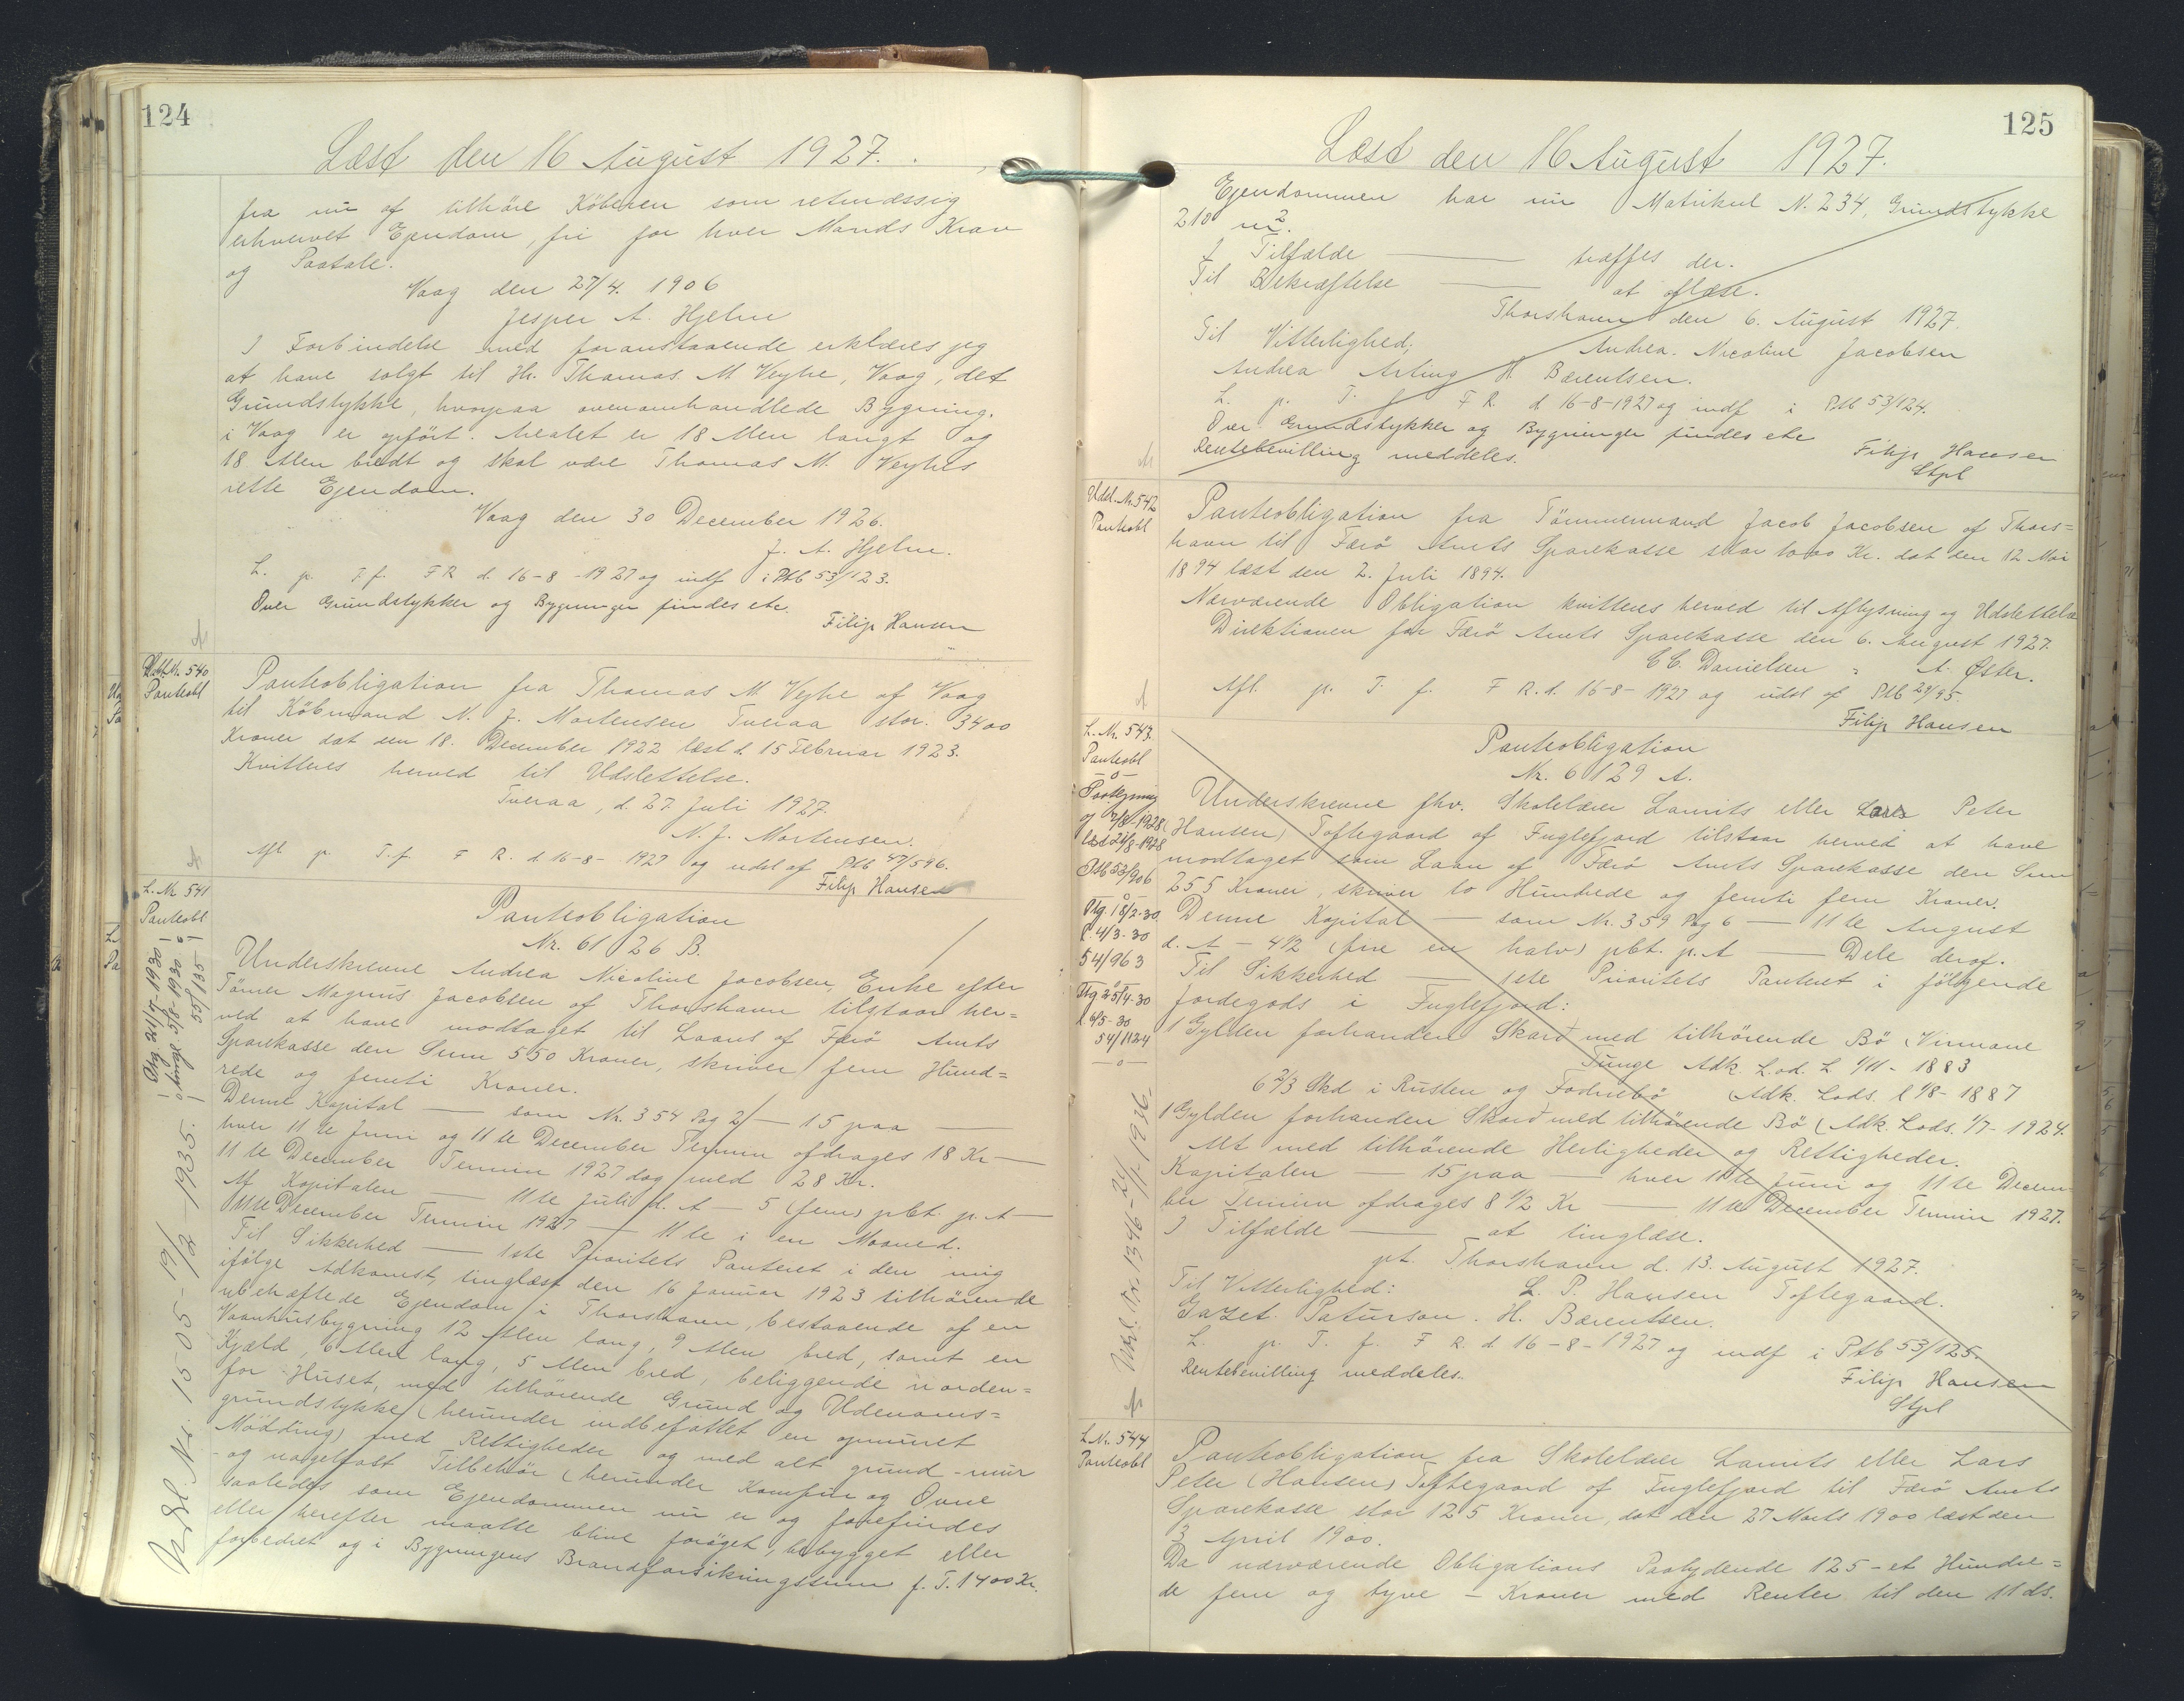 124
Læst den 16 August 1927.
fra nu af tilhöre Köberen som retmæssig
erhvervet Ejendom, fri for hver Mands Krav
og Paatale.
Vaag den 27/4. 1906
Jesper A. Hjelm
I Forbindelse med foranstaaende erklæres jeg
at have solgt til Hr. Thomas M Vejhe, Vaag, det
Grundstykke, hvorpaa ovenomhandlede Bygning.
i Vaag er opfört. Arealet er 18 Alen langt og
18 Alen bredt og skal være Thomas M. Vejhes
rette Ejendom.
Vaag den 30 December 1926.
J. A. Hjelm.
L. p. T. f. F R d. 16-8-1927 og indf i Ptb 53/123.
Over Grundstykker og Bygninger findes etc.
Filip Hansen
Udsl. Nr. 540
Panteobl
Panteobligation fra Thomas M. Vejhe af Vaag
til Köbmand N. J. Mortensen Tveraa stor. 3400
Kroner dat den 18. December 1922 læst d. 15 Februar 1923.
Kvitteres herved til Udslettelse.
Tveraa, d. 27. Juli 1927.
N. J. Mortensen.
Afl p. T. f. F R. d 16-8- 1927 og udsl af Ptb 47/596.
Filip Hansen
L. Nr 541
Panteobl
Panteobligation
Nr. 6126 B.
Underskrevne Andrea Nicoline Jacobsen, Enke efter
Tömrer Magnus Jacobsen af Thorshavn tilstaar her=
ved at have modtaget til Laans af Færö Amts
Sparekasse den Sum 550 Kroner, skriver fem Hund=
rede og femti Kroner.
Denne Kapital — som Nr. 354 Pag 2 — 15 paa —
hver 11te Juni og 11te December Termin afdrages 18 Kr —
11te December Termin 1927 dog med 28 Kr.
Af Kapitalen — 11te Juli d. A — 5 (fem) pCt. p. A —
11te December Termin 1927 — 11te i en Maaned.
Til Sikkerhed — 1ste Prioritets Panteret i den mig
ifölge Adkomst, tinglæst den 16 Januar 1923 tilhörende
ubehæftede Ejendom i Thorshavn, bestaaende af en
Vaanhusbygning 12 Alen lang, 9 Alen bred, samt en
Kjæld, 6 Alen lang, 5 Alen bred, beliggende norden=
for Huset, med tilhörende Grund og Udenoms=
grundstykke (herunder indbefattet en opmuret
Mödding) med Rettigheder og med alt grund - mur
- og nagelfast Tilbehör (herunder Komfur og Ovne
saaledes som Ejendommen nu er og forefindes
eller herefter maatte blive foröget, bebygget eller
forbedret og i Bygningens Brandforsikringssum f. T. 1400 Kr.
Ptg. 21/7-1930
tingl. 5/8-1930
55/135
Udsl. Nr. 1505 - 19/2 - 1935.
125
Læst den 16 August 1927.
Ejendommen har nu Matrikul N. 234, Grundstykke
210 m².
I Tilfælde — træffes der.
Til Bekræftelse — at aflæse.
Thorshavn den 6. August 1927.
Til Vitterlighed; Andrea. Nicoline Jacobsen
Andrea Arting H. Bærentsen.
L. p. T. f. F R d 16-8-1927 og indf i Ptb 53/124.
Over Grundstykker og Bygninger findes etc
Rentebevilling meddeles. Filip Hansen
Stpl
Udsl. Nr. 542
Panteobl
Panteobligation fra Tömmermand Jacob Jacobsen af Thors=
havn til Færö Amts Sparekasse stor 1000 Kr. dat den 12 Mai
1894 læst den 2. Juli 1894.
Nærværende Obligation kvitteres herved til Aflysning og Udslettelse
Direktionen for Færö Amts Sparekasse den 6. August 1927.
C C. Danielsen A. Øster.
Afl. p. T. f. F R. d. 16-8- 1927 og udsl af Ptb 29/95.
Filip Hansen
L. Nr. 543.
Panteobl
Paategning
af 7/8-1928
læst 21/8-1928
Ptb 53/906
Ptg 18/2-30
l. 4/3-30
54/963
Ptg 25/4-30
l 6/5-30
54/1124
Udsl. Nr. 1346 - 21/1-1936.
Panteobligation
Nr. 6129 A.
Underskrevne fhv. Skolelærer Laurits eller Lars Peter
(Hansen) Toftegaard af Fuglefjord tilstaar herved at have
modtaget som Laan af Færö Amts Sparekasse den Sum
255 Kroner, skriver to Hundrede og femti fem Kroner.
Denne Kapital — som Nr. 359 Pag 6 — 11te August
d. A - 4½ (fire en halv) pCt. p. A — Dele deraf.
Til Sikkerhed — 1ste Prioritets Panteret i fölgende
Jordegods i Fuglefjord:
1 Gylden forhanden Skard med tilhörende Bö (Vinmane
Tunge Adk L. od. L 1/11 - 1883
6⅔ Skd i Rusten og Fodnebö (Adk. Lods. l 1/8 - 1887
1 Gylden forhanden Skard med tilhörende Bö (Adk. Lods. 1/7 - 1924.
Alt med tilhörende Herligheder og Rettigheder.
Kapitalen — 15 paa — hver 11te Juni og 11te Decem=
ber Termin afdrages 8½ Kr — 11te December Termin 1927.
I Tilfælde — at tinglæse.
pt. Thorshavn d. 13. August 1927.
Til Vitterlighed: L. P. Hansen Toftegaard.
Gazet. Paturson. H. Bærentsen.
L. p. T. f. F R. d 16-8-1927 og indf i Ptb 53/125.
Rentebevilling meddeles. Filip Hansen
Stpl
L. Nr. 544
Panteobl
Panteobligation fra Skolelærer Laurits eller Lars
Peter (Hansen) Toftegaard af Fuglefjord til Færö Amts
Sparekasse stor 125 Kroner, dat den 27 Marts 1900 læst den
3 April 1900.
Da nærværende Obligations Paalydende 125 - et Hundre=
de fem og tyve - Kroner med Renter til den 11 ds.